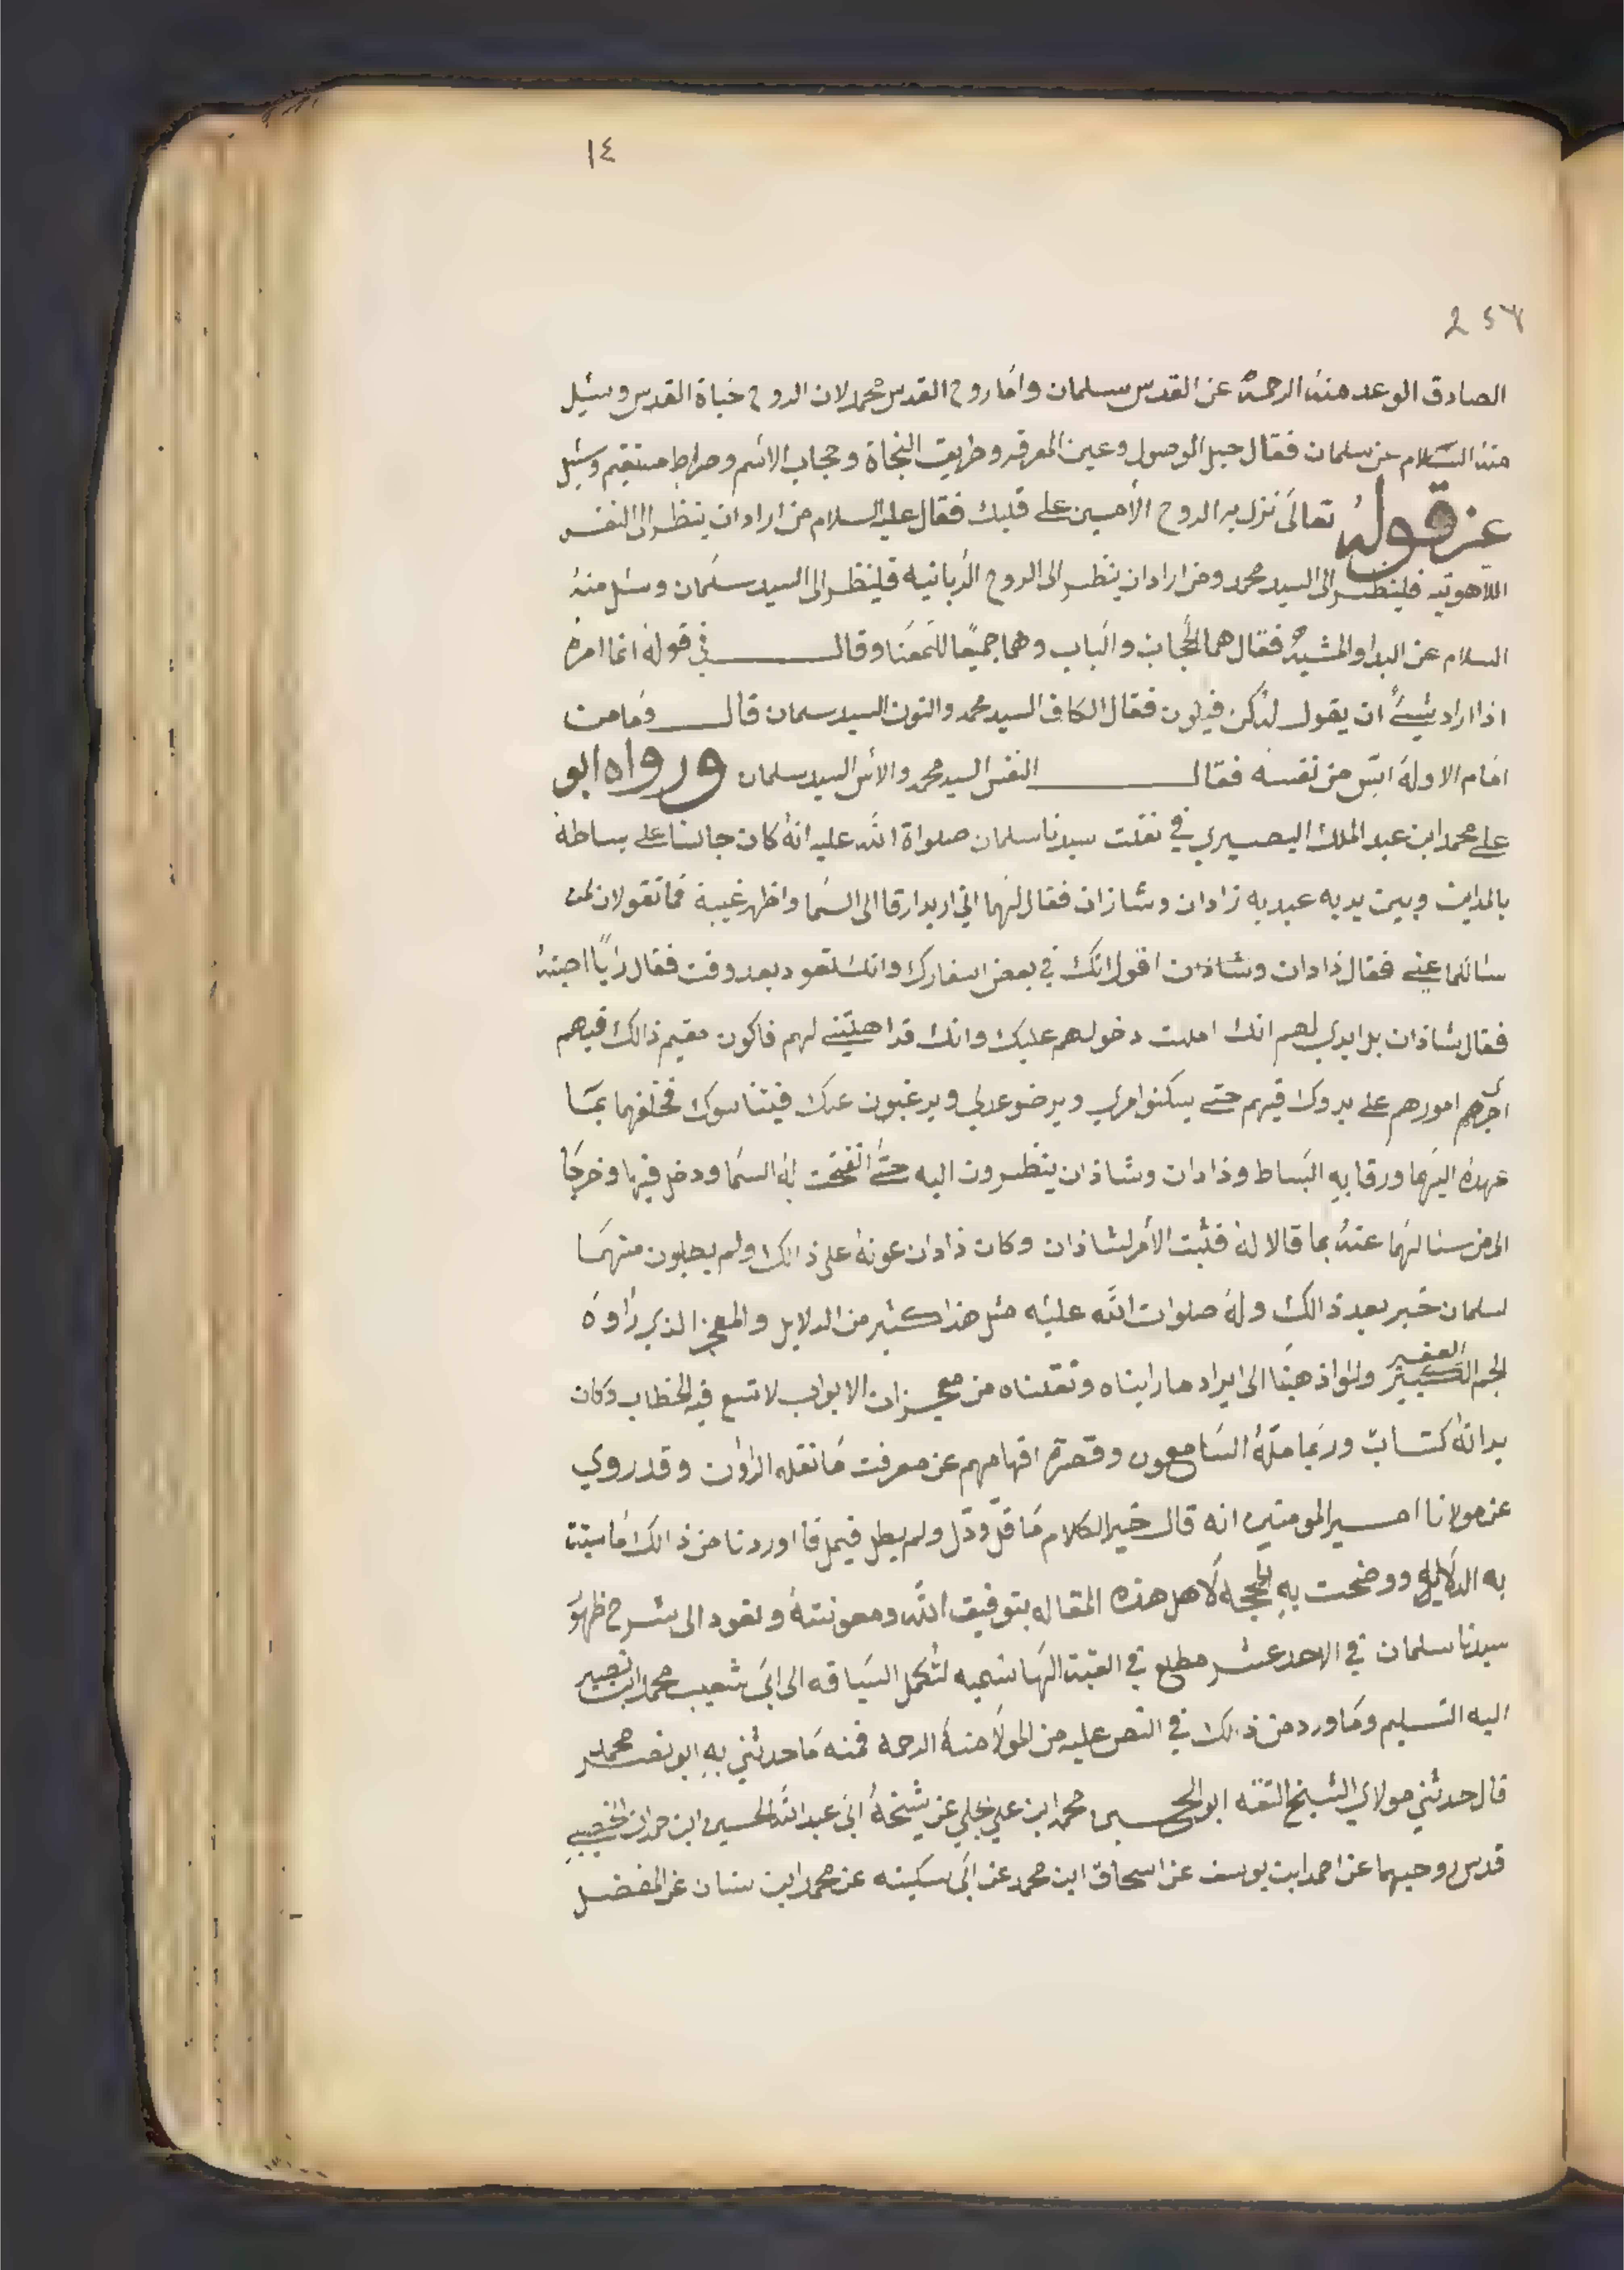 ١٤
الصادق الوعد منه الرحمة عن القدس سلمان واما روح القدس محمد لان الروح حياة القدس وسئيل
منه السلام عن سلمان فقال حبل الوصول وعين المعرفه وطريق النجاة وحجاب الاسم وصراط مستقيم وسئيل
عن قوله تعالى نزل به الروح الأمين على قلبك فقال عليه السلام من اراد ان ينظر الى النفس
اللاهوتيه فلينظر الى السيد محمد ومن اراد ان ينظر الى الروح الربانيه فلينظر الى السيد سلمان وسئل منه
السلام عن البدا والمشيه فقال هما الحجاب والباب وهما جميعًا للمعنا وقال في قوله انما امره
اذا اراد شيئً ان يقول له كن فيكون فقال الكاف السيد محمد والنون السيد سلمان قال وما من
امام الا وله من نفسه فقال النفس السيد محمد والانس السيد سلمان ورواه ابو
علي محمد ابن عبد الملك البصيري في نقلت سيدنا سلمان صلواة الله عليه انه كان جالسا على بساطه
بالمداين وبين يديه عبديه زادان وشاذان فقال لهما اني اريد ارقا الى السما واظهر غيبة فما تقولان لمن
سائلكما عني فقال ذادان وشاذان اقول انك في بعض اسفارك وانك تعود بعد وقت فقال
فقال شاذان بل ابدي لهم انك امللت دخولهم عليك وانك قد لهم فاكون مقيم ذالك فيهم
اجري امورهم على فيهم حتى يسكنوا امري ويرضو عدلي ويرغبون عنك فيتناسوك فخلفهما بما
عهده اليهما ورقا به البساط وذادان وشاذان ينظرون اليه حتى انفتحت له السما ودخل فيها وخرجا
الى من سالهما عنه بما قالا له فثبت الأمر لشاذان وكان ذادان عونه على ذالك ولم منهما
لسلمان خبر بعد ذالك وله صلوات الله عليه مثل هذا كثير من الدلايل والمعجز الذي رأوه
الجم الغفير الكبير ولو اذهبنا الى ايراد ما رايناه ونقلناه من معجزات الابواب لا تسع فيه الخطاب وكان
بدانه كتاب وربما مله السامعون وقصرة افهامهم عن معرفت ما نقله الراون وقد روي
عن مولانا امير المومنين انه قال خير الكلام ما قل ودل ولم يطل فيمل فاوردنا من ذالك ما
به الدلايل ووضحت به الحجه لاهل هذه المقاله بتوفيق الله ومعونته ونعود الى شرح ظهور
سيدنا سلمان في الاحد عشر مطلع في القبة الهاشميه لتكمل السياقه الى ابي شعيب محمد ابن نصير
اليه التسليم وما ورد من ذالك في النص عليه من المولا منه الرحمه فمنه ما حدثني به ابو محمد
قال حدثني مولاي الشيخ الثقه ابو الحسين محمد ابن علي الجلي عن شيخه ابي عبد الله الحسين ابن حمدان الخصيبي
قدس روحيهما عن احمد ابن يوسف عن اسحاق ابن محمد عن ابي سكينه عن محمد ابن سنان عن المفضل